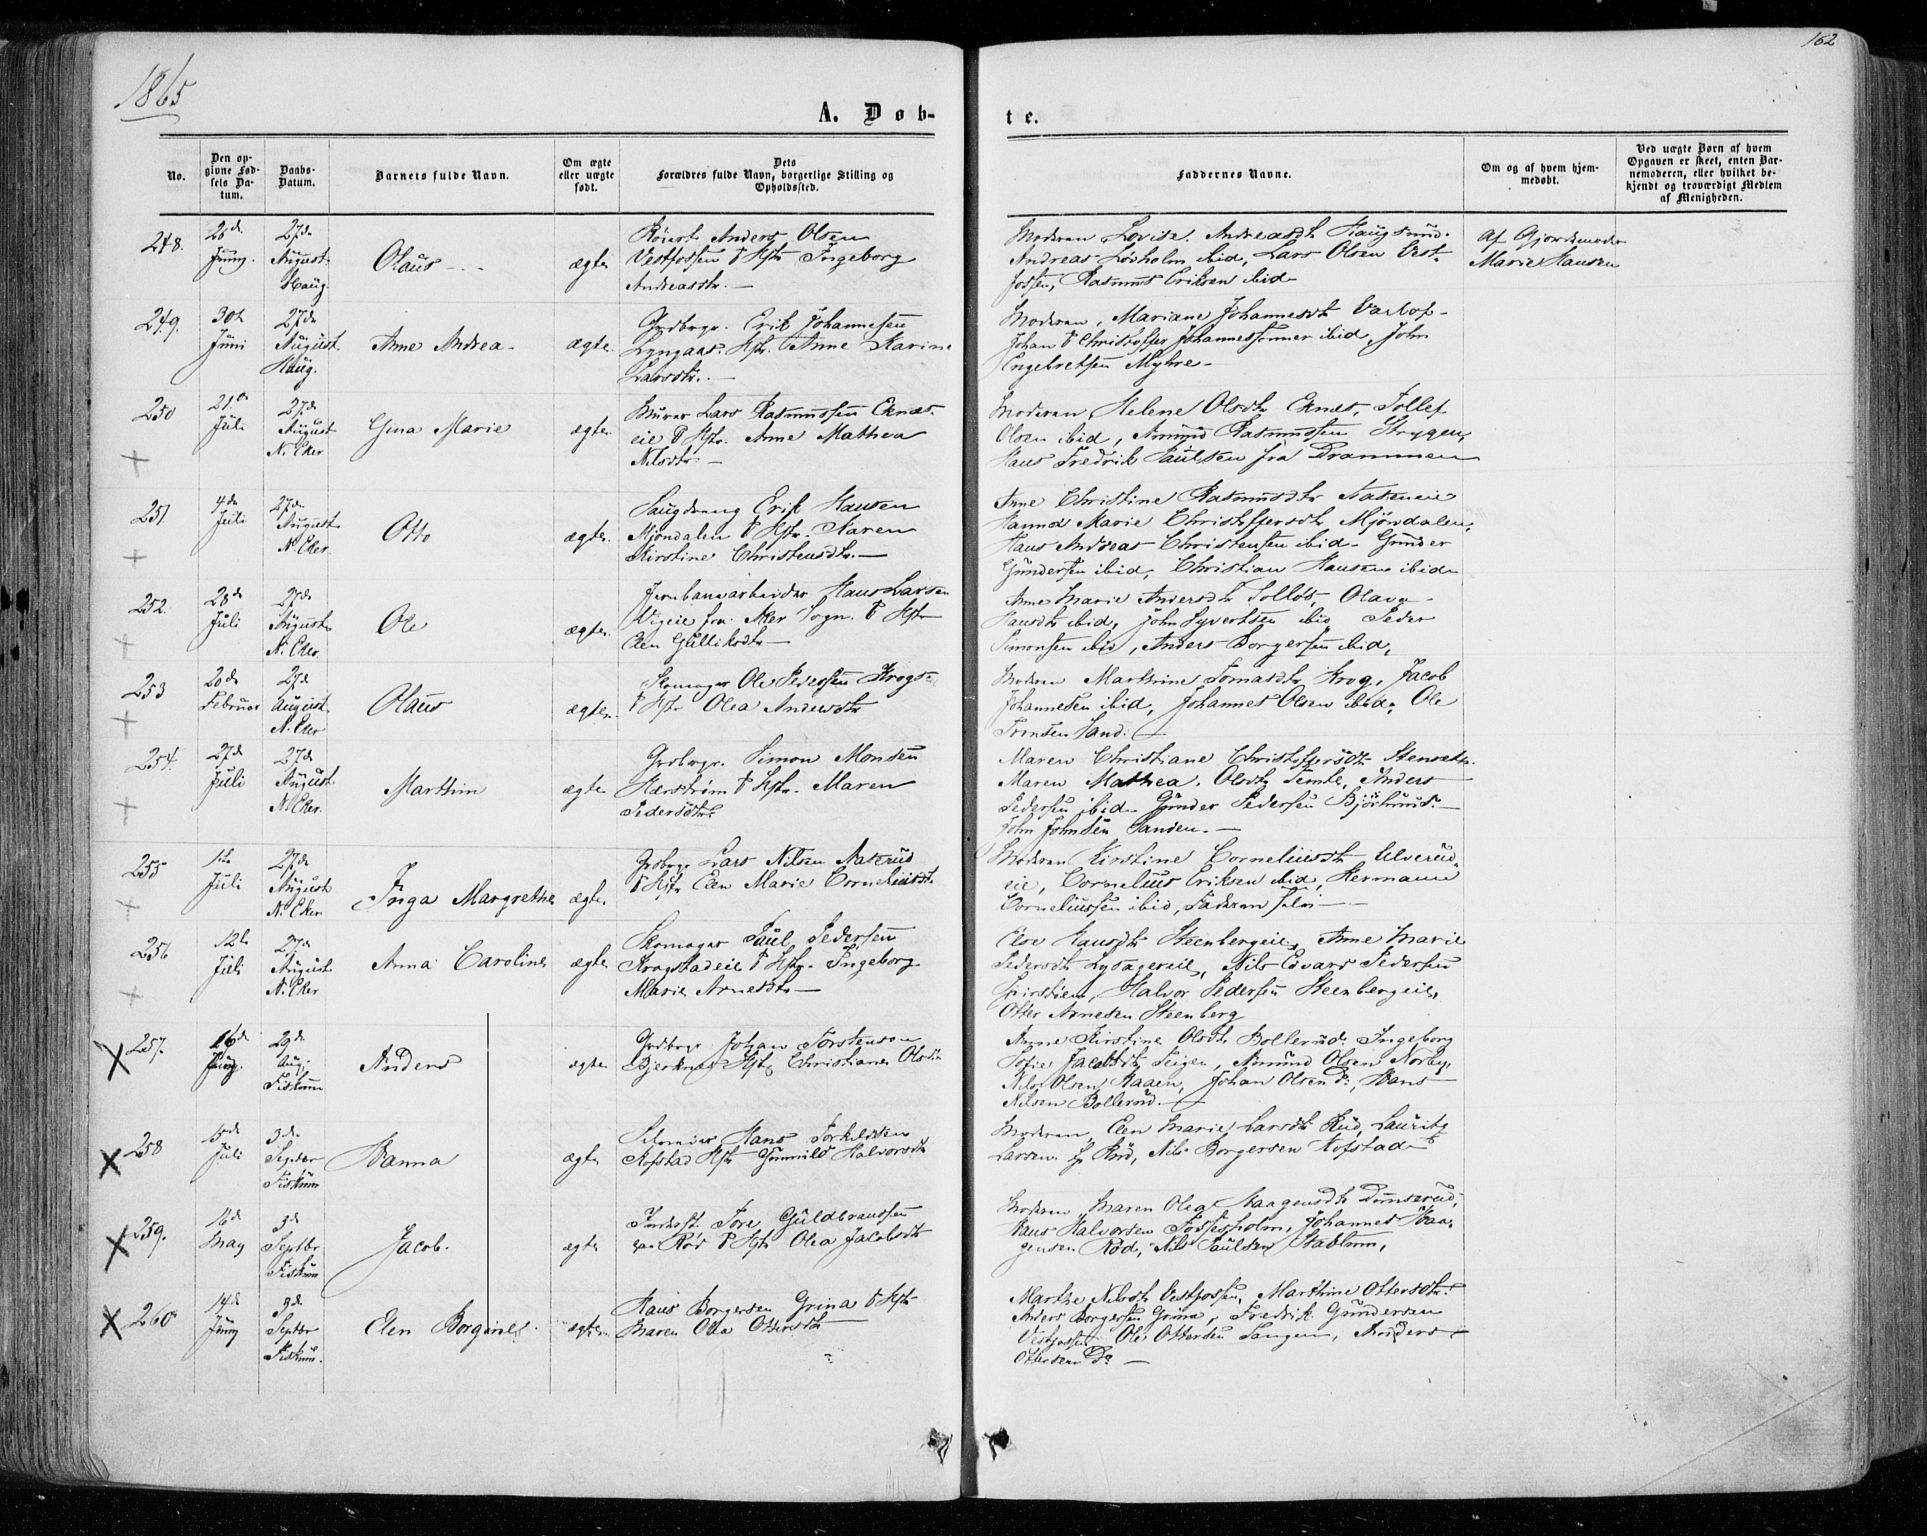 1865
162
A. Døb-
te.
No.
Den op-
givne Fød-
sels Da-
tum.
Daabs-
Datum.
Barnets fulde Navn.
Om ægte
eller uægte
født.
Dets
Forældres fulde Navn, borgerlige Stilling og
Opholdssted.
Faddernes Navne.
Om og af hvem hjem-
medøbt.
Ved uægte Børn af hvem
Opgaven er skeet, enten Bar-
nemoderen, eller hvilket be-
kjendt og troværdigt Medlem
af Menigheden.
248.
Juny.
27de
August
Haug
Olaus
ægte
Anders Olsen
Vestfossen & Hstr Ingeborg
Andreasdtr.
Moderen Lovise Andreasdt Haugsund.
Andreas Lovholm ibid, Lars Olsen Vest-
fossen, Rasmus Eriksen ibid
Af Gjordemoder
Marie Hansen
249.
30te
Juni
27de
August
Haug.
Anne Andrea
ægte
Grdbrgr. Erik Johannesen
Lyngaas. Hstr. Anne Karine
Larsdtr.
Moderen, Mariane Johannesdt
Johan & Christoffer Johannessønner ibid, John
Engebretsen Myhre
250
21de
Juli
27de
August
N. Eker
Gina Marie
ægte
Murer Lars Rasmussen Eknes-
eie & Hstr. Anne Mathea
Nilsdtr
Moderen Helene Olsdtr Eknes, Tollef
Olsen ibid, Amund Rasmussen Strygen,
Hans Fredrik Paulsen fra Drammen
251.
4de
Juli
27de
August
N. Eker
Otto
ægte
Saugdreng Erik Hansen
Mjøndalen & Hstr. Karen
Kirstine Christensdtr.
Anne Christine Rasmusdtr
Hanna Marie Christoffersdtr Mjøndalen,
Hans Andreas Christensen ibid. Gunder
Gundersen ibid, Christian Hansen ibid
252.
28de
Juli
27de
August
N. Eker
Ole
ægte
Jernbanearbeider Hans Larsen
Vigeie fra Aker Sogn. & Hstr
Elen Gulliksdtr
Anne Marie Andersdtr Solløs, Olava
Hansdtr ibid, John Syvertsen ibid Peder
Simonsen ibid, Anders Borgersen ibid,
253
20de
Februar
27de
August
N. Eker
Olaus
ægte
Skomager Ole Pedersen Krogs-
& Hstr Olea Andersdtr
Moderen Marthine Tomasdtr Krog, Jacob
Johannesen ibid, Johannes Olsen ibid, Ole
Sand.
254.
27de
Juli
27de
August
N. Eker
Marthin
ægte
Grdbrgr. Simon Monsen
Hærstrøm & Hstr. Maren
Pedersdtr.
Maren Christiane Christoffersdtr Stenset
Maren Mathea Olsdtr Temle, Anders
Pedersen ibid Gunder Pedersen
John Johnsen Sanden.
255
Juli
27de
August
N. Eker
Inga Margrethe
ægte
Grdbrgr Lars Nilsen Aaserud
& Hstr Elen Marie Corneliusdt
Moderen Kirstine Corneliusdt Ulverud-
eie, Cornelius Eriksen ibid, Hermann
Corneliussen ibid, Faderen selv
256
12te
Juli
27de
August
N. Eker
Anna Caroline
ægte
Skomager Paul Pedersen
Krogstadeie & Hstr. Ingeborg
Marie Arnesdtr
Hansdtr Steenbergeie, Anne Marie
Pedersdtr Lysagereie, Nils Edvard Pedersen
Halvor Pedersen Steenbergeie,
Otter Arnesen Steenberg
257.
16de
Juny.
29de
Aug.
Fiskum
Anders
ægte
Grdbrgr Johan Torstensen
Bjerknes Hstr Christiane Olsdtr
Anne Kirstine Olsdtr Bollerud. Ingeborg
Sofie Jacobsdtr Teigen, Amund Olsen Norby,
Nils Olsen Raaen, Johan Olsen do, Hans
Nilsen Bollerud.
258
15de
Juli
3de
Septbr
Fiskum
Hanna
ægte
Selveier Hans Torkildsen
Hofstad Hstr Gunnild Halvorsdt
Moderen, Elen Marie Larsdt Rud, Laurits
Larsen Rød, Nils Borgersen Hofstad
259.
16de
May
3de
Septbr
Fiskum
Jacob.
ægte
Inderst Tore Guldbransen
Rød & Hstr Olea Jacobsdt
Moderen Maren Olea Haagensdt
Hans Halvorsen Fossesholm, Johannes Haa-
gensen Rød, Nils Paulsen Stablum,
260
14de
Juny
3de
Septbr
Fiskum.
Elen Borgine
ægte
Hans Borgersen Grina & Hstr
Maren Olea Ottersdtr
Marthe Nilsdt Vestfossen, Marthine Ottersdtr.
Anders Borgersen Grina, Fredrik Gundersen
Vestfossen, Ole Ottersen Tangen, Anders
Ottersen Do